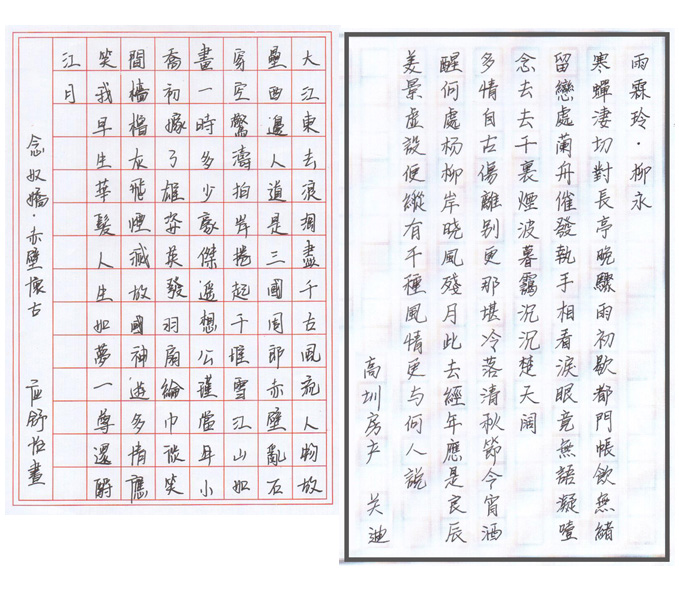 雨霖玲·柳永
寒蟬淒切對長亭晚驟雨初歇都門帳飲無緒
留戀處蘭舟催發執手相看淚眼竟無語凝噎
念去去千裏煙波暮靄沉沉楚天闊
多情自古傷離别更那堪冷落清秋節今宵酒
醒何處杨柳岸晓風殘月此去經年應是良辰
美景虛設便縱有千種風情更与何人説
高圳房产 关迪
大江東去浪淘盡千古風流人物故
壘西邊人道是三國周郎赤壁亂石
穿空驚濤拍岸捲起千堆雪江山如
畫一時多少豪傑遥想公瑾當年小
喬初嫁了雄姿英發羽扇綸巾談笑
間檣櫓灰飛煙滅故國神遊多情應
笑我早生華髮人生如夢一尊還酹
江月
念奴嬌·赤壁懷古 应舒怡畫